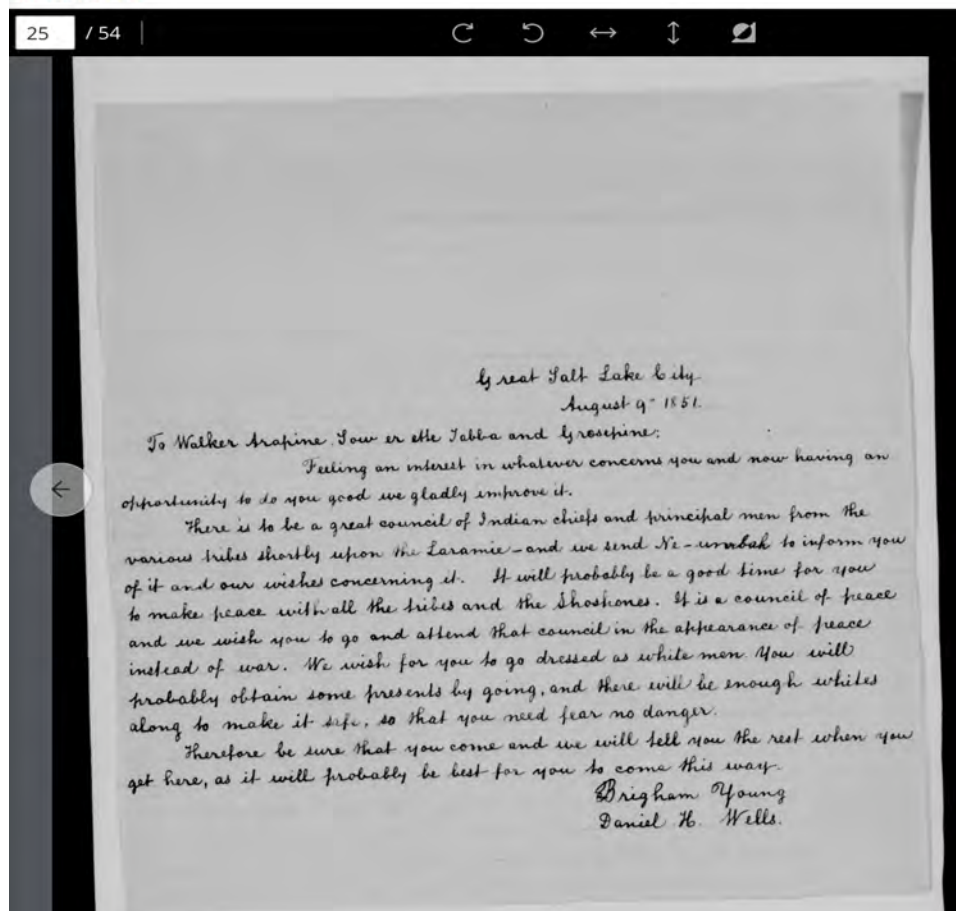 25 / 54
Great Salt Lake City
August 9" 1851.
To Walker Arapine, Sow er ette Tabba and Grosepine:
Feeling an interest in whatever concerns you and now having an
opportunity to do you good we gladly improve it.
There is to be a great council of Indian chiefs and principal men from the
various tribes shortly upon the Laramie - and we send Ne-umbah to inform you
of it and our wishes concerning it. It will probably be a good time for you
to make peace with all the tribes and the Shoshones. It is a council of peace
and we wish you to go and attend that council in the appearance of peace
instead of war. We wish for you to go dressed as white men. You will
probably obtain some presents by going, and there will be enough whites
along to make it safe, so that you need fear no danger.
Therefore be sure that you come and we will tell you the rest when you
get here, as it will probably be best for you to come this way.
Brigham Young
Daniel H. Wells.